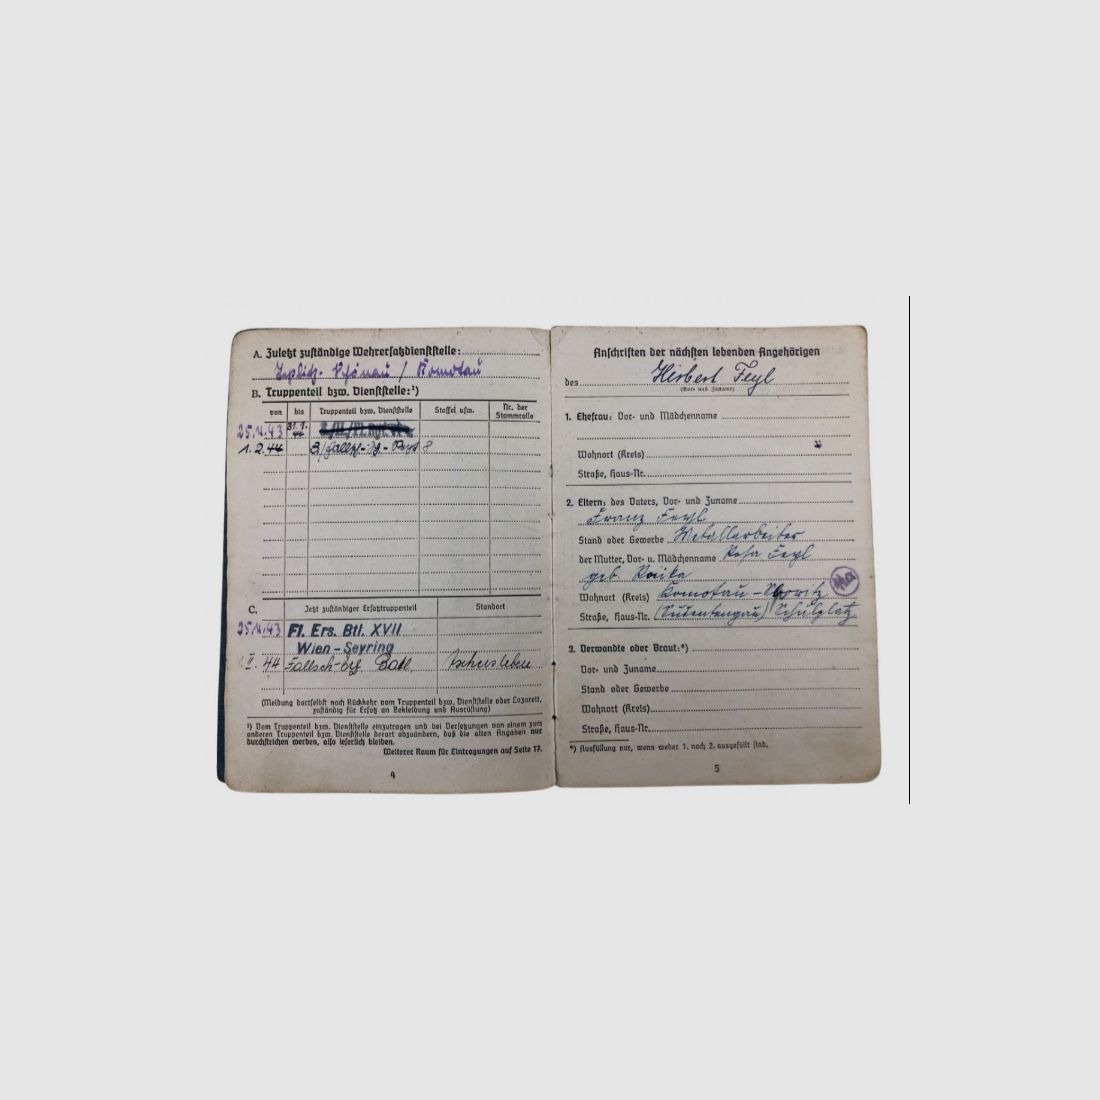 A. Zuletzt zuständige Wehrersatzdienststelle:
Teplitz-Schönau / Komotau
B. Truppenteil bzw. Dienststelle:¹)
von bis Truppenteil bzw. Dienststelle Staffel usw. Nr. der Stammrolle
25.11.43 31.1.44
1.2.44 3/Fallsch-Jg-Regt 8
C. Jetzt zuständiger Ersatztruppenteil Standort
25.11.43 Fl. Ers. Btl. XVII
Wien-Seyring
44 Fallsch-Jg
(Meldung dortselbst nach Rückkehr vom Truppenteil bzw. Dienststelle oder Lazarett,
zuständig für Ersatz an Bekleidung und Ausrüstung)
¹) Vom Truppenteil bzw. Dienststelle einzutragen und bei Versetzungen von einem zum
anderen Truppenteil bzw. Dienststelle derart abzuändern, daß die alten Angaben nur
durchstrichen werden, also leserlich bleiben.
Weiterer Raum für Eintragungen auf Seite 17.
4
Anschriften der nächsten lebenden Angehörigen
des Herbert Feyl
(Vor- und Zuname)
1. Ehefrau: Vor- und Mädchenname
Wohnort (Kreis)
Straße, Haus-Nr.
2. Eltern: des Vaters, Vor- und Zuname
Franz Feyl
Stand oder Gewerbe Metallarbeiter
der Mutter, Vor- u. Mädchenname Rosa Feyl
geb.
Wohnort (Kreis) Komotau-
Straße, Haus-Nr. (Sudetengau) Schulplatz
3. Verwandte oder Braut:*)
Vor- und Zuname
Stand oder Gewerbe
Wohnort (Kreis)
Straße, Haus-Nr.
*) Ausfüllung nur, wenn weder 1. noch 2. ausgefüllt sind.
5